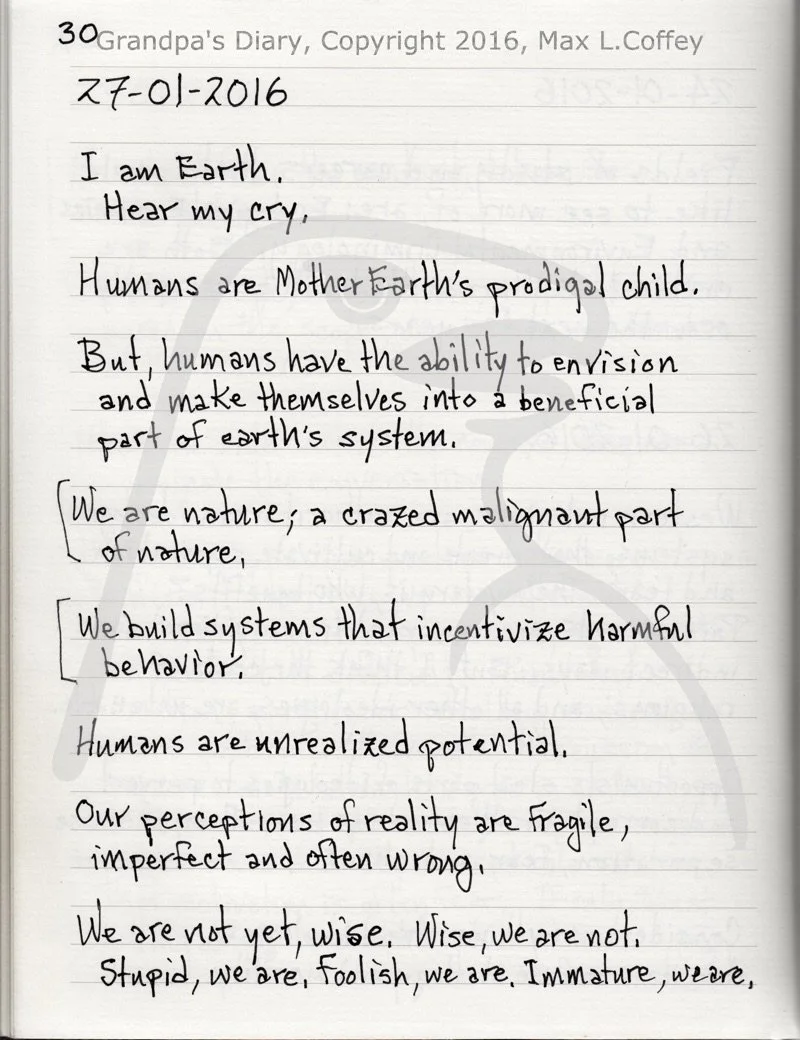 30
Grandpa's Diary, Copyright 2016, Max L.Coffey
27-01-2016
I am Earth.
Hear my cry.
Humans are Mother Earth's prodigal child.
But, humans have the ability to envision
and make themselves into a beneficial
part of earth's system.
We are nature; a crazed malignant part
of nature.
We build systems that incentivize harmful
behavior.
Humans are unrealized potential.
Our perceptions of reality are fragile,
imperfect and often wrong.
We are not yet, wise. Wise, we are not.
Stupid, we are. Foolish, we are. Immature, we are.